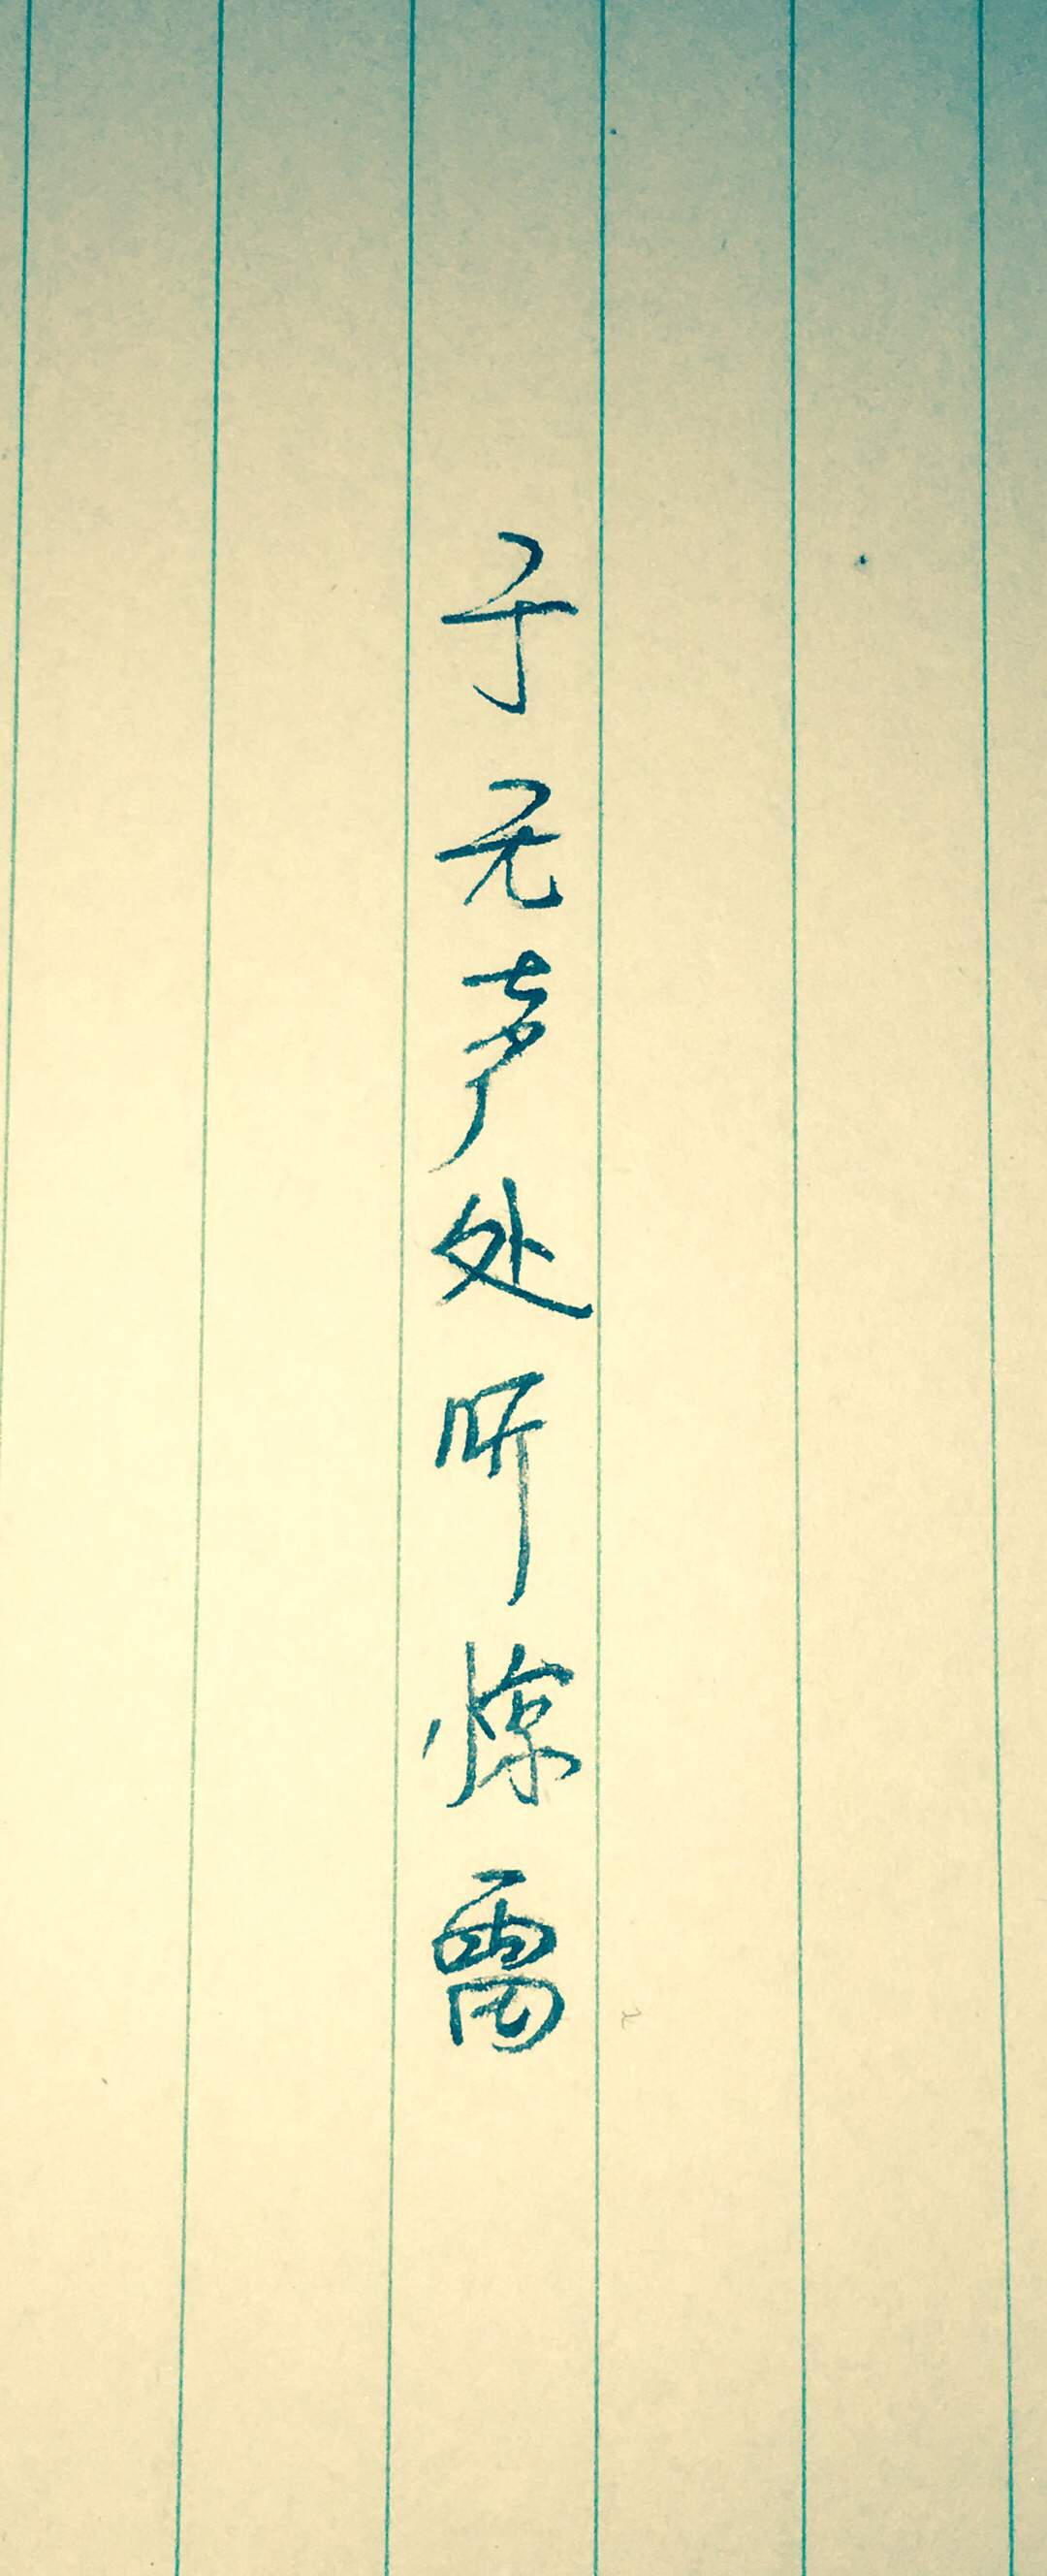 于无声处听惊雷